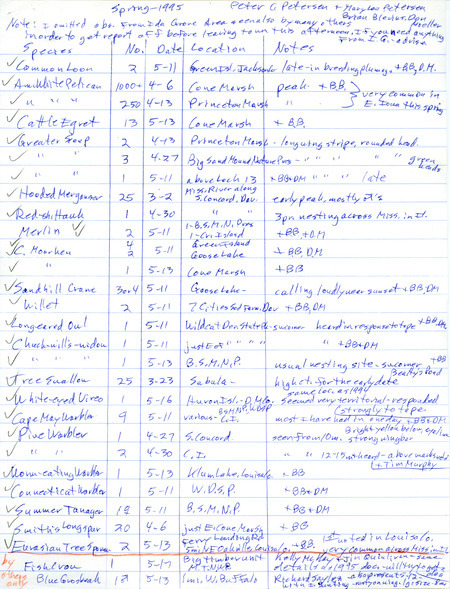 Spring-1995 Peter C Petersen + Mary Lou Petersen
Brian Blevins, Don Moeller
Note: I omitted obs. From Ida Grove Area seen also by many others
in order to get report off before leaving town this afternoon. If you need anything
From I.G. - advise
Species No. Date Location Notes
Common Loon 2 5-11 Green Isl. Jackson Co late-in breeding plumage + BB, D.M.
Am. White Pelican 1000+ 4-6 Cone Marsh peak + B.B. very common in
" " " 250 4-13 Princeton Marsh " E. Iowa this spring
Cattle Egret 13 5-13 Cone Marsh + BB.
Greater Scaup 2 4-13 Princeton Marsh - long wing stripe, rounded head.
" " 3 4-27 Big Sand Mound Nature Pres - " " " " " green heads
" " 1 5-11 above Lock 13 + BB + DM " " late
Hooded Merganser 25 3-2 Miss. River along
S. Concord, Dav. early peak, mostly ♂'s
Red-sh. Hawk 1 4-30 " " 3 pr. nesting across Miss. in Il.
Merlin 2 5-11 1-B.S.M.N. Pres
1-Cr. Island + BB, + DM
C. Moorhen 4 Green Island
2 5-11 Goose Lake + BB, DM
" 1 5-13 Cone Marsh + BB
Sandhill Crane 3 or 4 5-11 Goose Lake - calling loudly near sunset + BB, DM
Willet 2 5-11 7 Cities Sod Farm, Dav + BB, DM
Long eared Owl 1 5-11 Wildcat Den State Pk - sw corner heard in response to tape + BB, DM
Chuck-wills-widow 1 5-11 just E of " " " " + BB + DM
" " " 1 5-13 B.S.M.N.P. usual nesting site - sw corner + BB
Beatty's Pond
Tree Swallow 25 3-23 Sabula - high ct. for the early date
same loc. as 1994
White-eyed Vireo 1 5-16 Huron Isl. - D.M. Co. seemed very territorial - responded
strongly to tape
Cape May Warbler 9 5-11 various - BSMNP, WDSP
C.I. most I have had in one day + BB, DM
Pine Warbler 1 4-27 S. Concord Bright yellow below, eye line
seen from Dav. strong wing bar
" 2 4-30 C.I. " 12-15 not heard - above marks noted
+ Tim Murphy
Worm-eating Warbler 1 5-13 Klum Lake, Louisa Co. + BB
Connecticut Warbler 1 5-11 W.D.S.P. + BB + DM
Summer Tanager 1♀ 5-11 B.S.M.N.P. + BB + DM
Smith's Longspur 20 4-6 just E. Cone Marsh + BB
Eurasian Tree Sparrow 2 5-13 Ferry Landing Rd
5 mi. N E Oakville, Louisa Co. + BB. 1st noted in Louisa Co.
very common across Miss. in IL
by others only
Fish Crow 1 5-17 Big timber unit
M.T.N.W.R Kelly McKay + Jim Quinlivan - same
details as 1995
Blue Grosbeak 1♂ 5-13 1 mi. W. Buffalo Richard Sayles